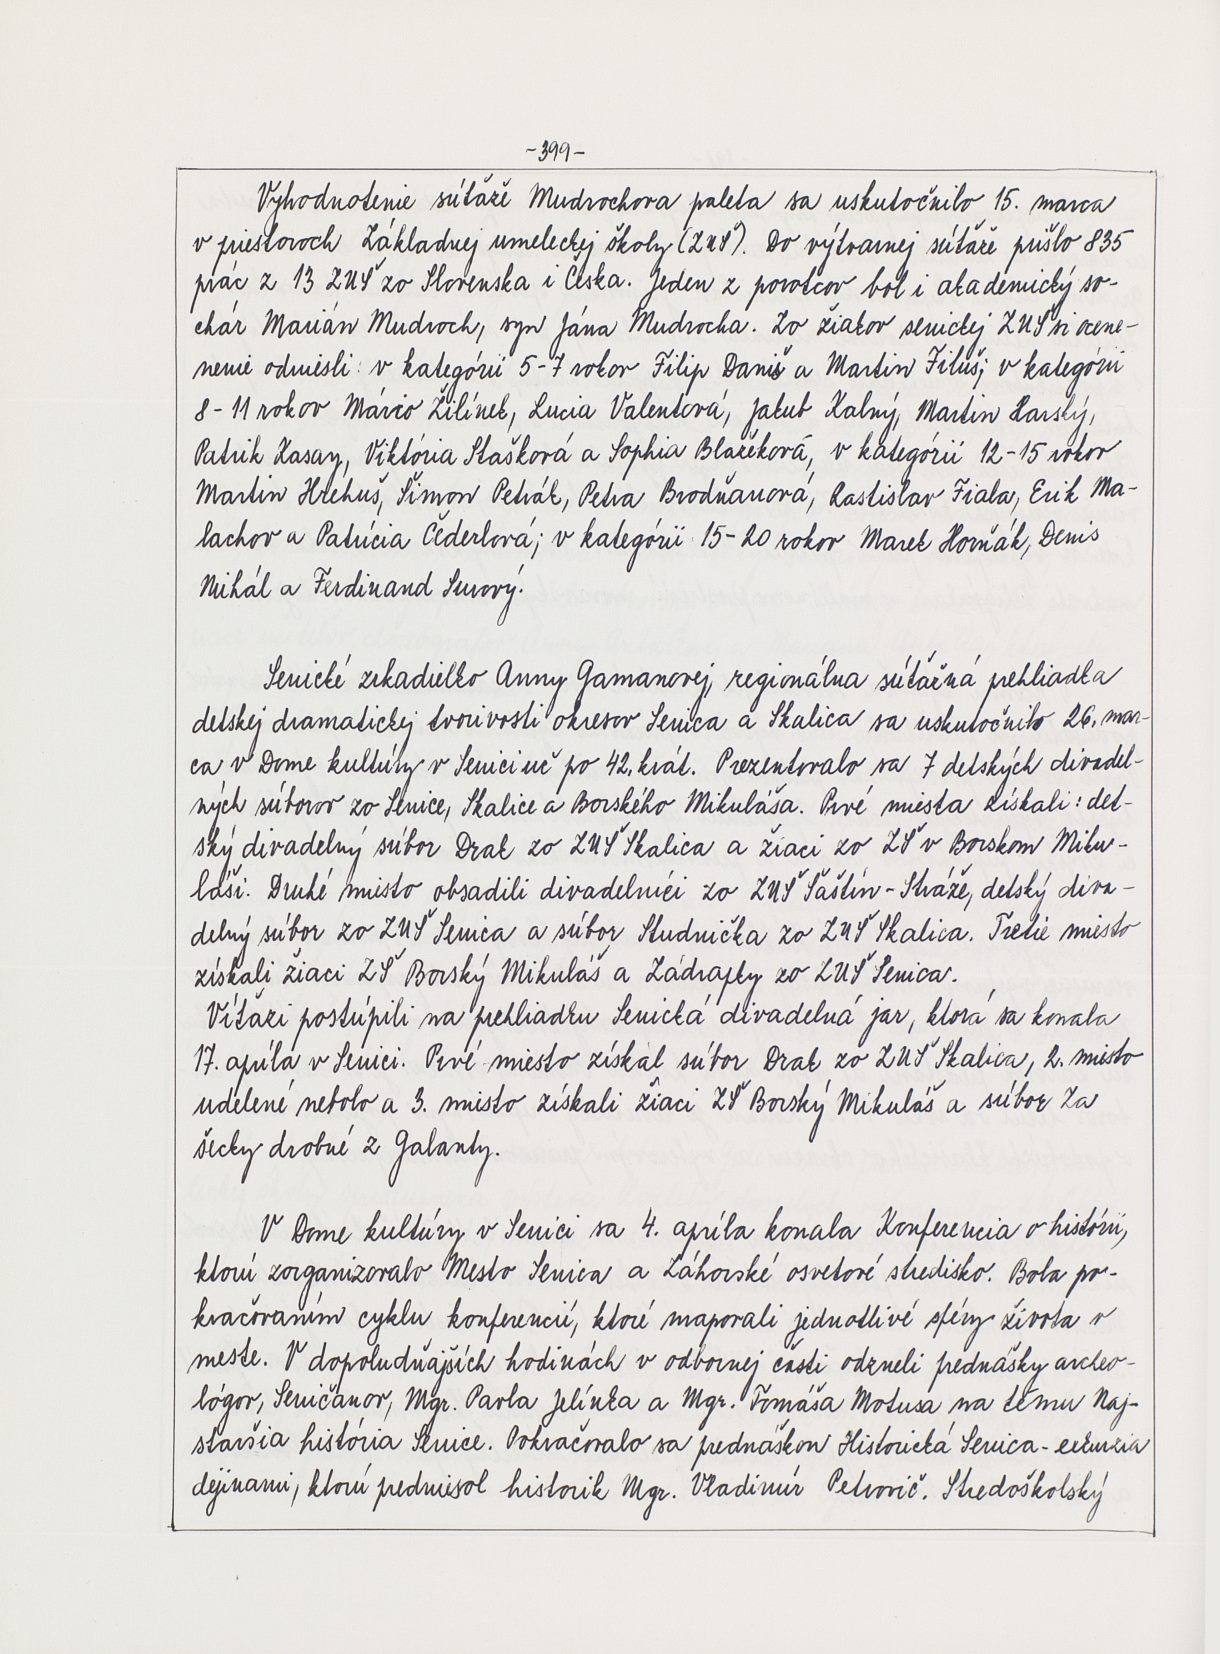 -399-
Vyhodnotenie súťaže Mudrochova paleta sa uskutočnilo 15. marca
v priestoroch Základnej umeleckej školy (ZUŠ). Do výtvarnej súťaže prišlo 835
prác z 13 ZUŠ zo Slovenska i Česka. Jeden z porotcov bol i akademický so-
chár Marián Mudroch, syn Jána Mudrocha. Zo žiakov senickej ZUŠ si ocene-
nenie odniesli: v kategórii 5-7 rokov Filip Daniš a Martin Filuš; v kategórii
8-11 rokov Márcio Žilínek, Lucia Valentová, Jakub Kalný, Martin Harský,
Patrik Zasay, Viktória Stašková a Sophia Blažeková, v kategórii 12-15 rokov
Martin Hrehuš, Šimon Petrák, Petra Brodňanová, Rastislav Fiala, Erik Ma-
lachov a Patrícia Čederlová; v kategórii 15-20 rokov Marek Horňák, Denis
Mihál a Ferdinand Surový.
Senické zrkadielko Anny Gamanovej, regionálna súťažná prehliadka
detskej dramatickej tvorivosti okresov Senica a Skalica sa uskutočnilo 26. mar-
ca v Dome kultúry v Senici už po 42. krát. Prezentovalo sa 7 detských divadel-
ných súborov zo Senice, Skalice a Borského Mikuláša. Prvé miesta získali: det-
ský divadelný súbor Drak zo ZUŠ Skalica a žiaci zo ZŠ v Borskom Miku-
láši. Druhé miesto obsadili divadelníci zo ZUŠ Šaštín-Stráže, detský diva-
delný súbor zo ZUŠ Senica a súbor Studnička zo ZUŠ Skalica. Tretie miesto
získali žiaci ZŠ Borský Mikuláš a Zádrapky zo ZUŠ Senica.
Víťazi postúpili na prehliadku Senická divadelná jar, ktorá sa konala
17. apríla v Senici. Prvé miesto získal súbor Drak zo ZUŠ Skalica, 2. miesto
udelené nebolo a 3. miesto získali žiaci ZŠ Borský Mikuláš a súbor Za
šecky drobné z Galanty.
V Dome kultúry v Senici sa 4. apríla konala Konferencia o histórii,
ktorú zorganizovalo Mesto Senica a Záhorské osvetové stredisko. Bola po-
kračovaním cyklu konferencií, ktoré mapovali jednotlivé sféry života v
meste. V dopoludňajších hodinách v odbornej časti odzneli prednášky archeo-
lógov, Seničanov, Mgr. Pavla Jelínka a Mgr. Tomáša Motusa na tému Naj-
staršia história Senice. Pokračovalo sa prednáškou Historická Senica - exkurzia
dejinami, ktorú predniesol historik Mgr. Vladimír Petrovič. Stredoškolský